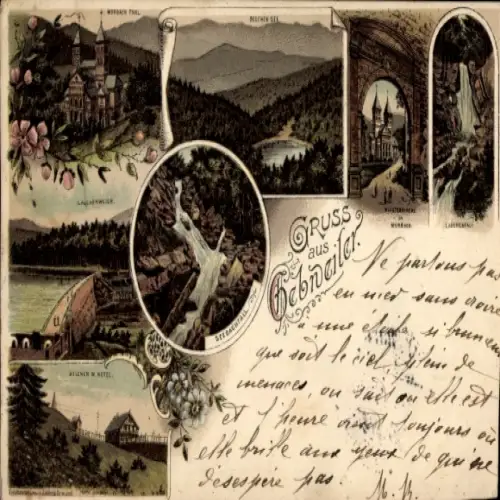 MURBACH THAL
BELCHEN SEE
LAUCHENWEIER
SEEBACHFALL
MURBACH
BELCHEN M. HOTEL
GRUSS
aus
Gebweiler.
Ne partons pas
en mer sans croire
à une étoile si
que soit le ciel plein de
menaces, on sait où elle est
et l'heure vient toujours où
elle brille aux yeux de qui ne
désespère pas.